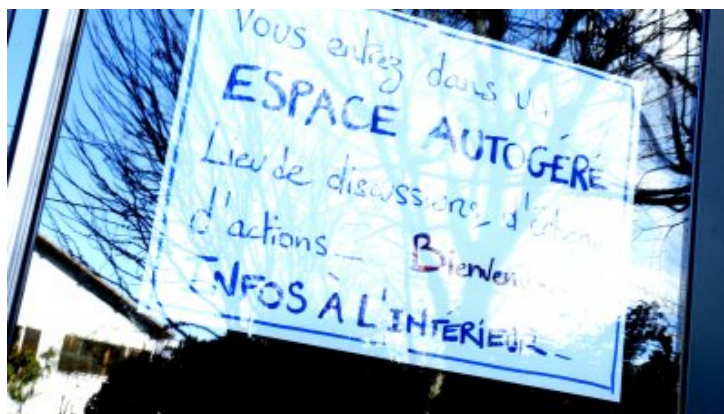 Vous entrez dans un
ESPACE AUTOGÉRÉ
Lieu de discussions,
d'actions_ Bienvenue
INFOS À L'INTÉRIEUR_